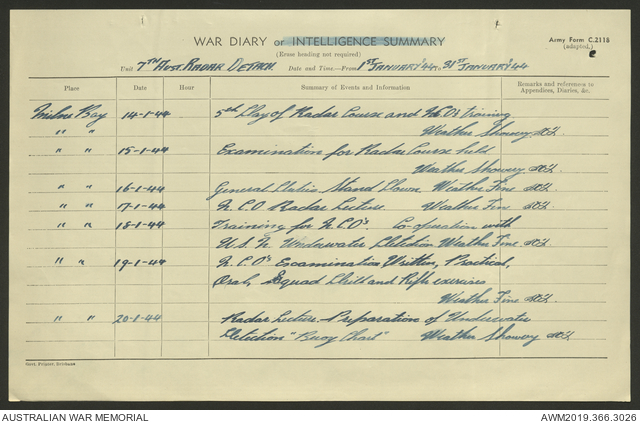 WAR DIARY or INTELLIGENCE SUMMARY
(Erase heading not required)
Army Form C.2118
(adapted.)
Unit 7TH AUST. RADAR DETACH. Date and Time—From 1ST JANUARY '44. 31ST JANUARY '44
Place Date Hour Summary of Events and Information Remarks and references to
Appendices, Diaries, &c.
Milne Bay 14-1-44 5th Day of Radar Course and N.C.O's training
" " Weather Showery
" " 15-1-44 Examination for Radar Course held
Weather Showery
" " 16-1-44 General Duties. Stand Down. Weather Fine
" " 17-1-44 N.C.O Radar Lecture. Weather Fine
" " 18-1-44 Training for N.C.O's. Co-operation with
U.S.N. Underwater Detection Weather Fine
" " 19-1-44 N.C.O's Examination Written, Practical,
Oral, Squad Drill and Rifle exercises
Weather Fine
" " 20-1-44 Radar Lecture. Preparation of Underwater
Detection "Buoy Chart" Weather Showery
Govt. Printer
AUSTRALIAN WAR MEMORIAL AWM2019.366.3026